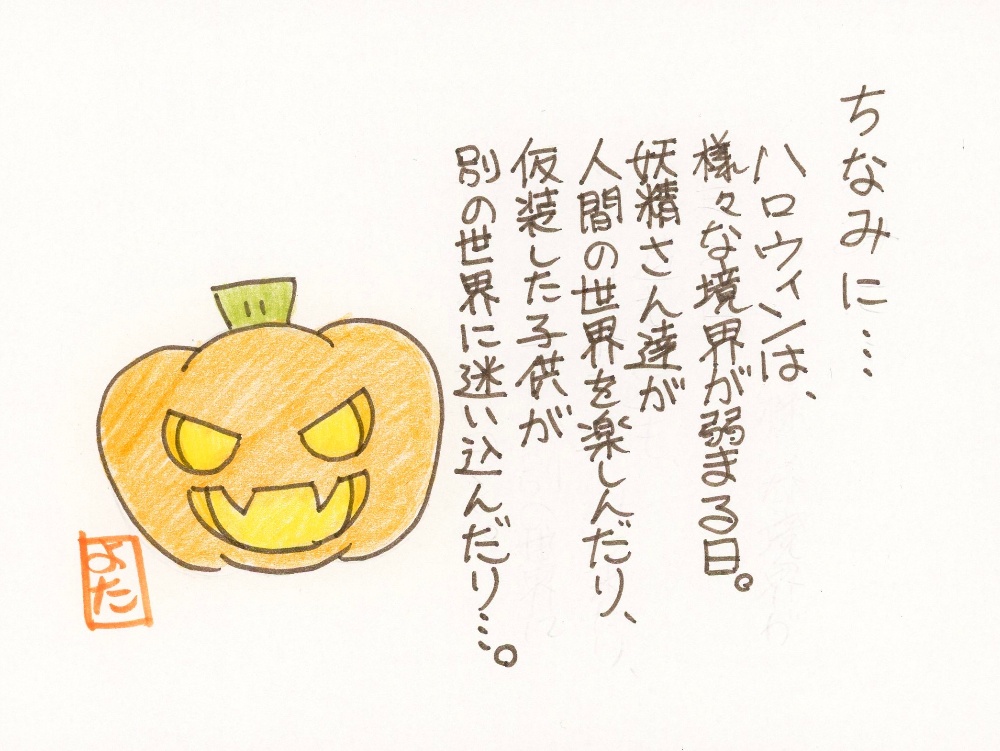 ちなみに…
ハロウィンは、
様々な境界が弱まる日。
妖精さん達が
人間の世界を楽しんだり、
仮装した子供が
別の世界に迷い込んだり…。
よた